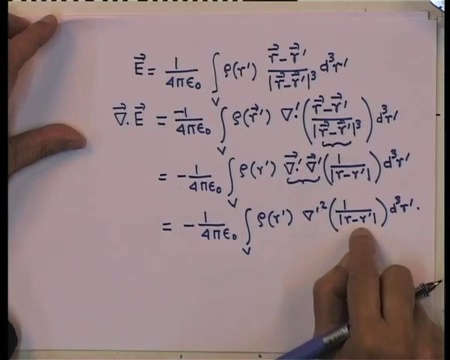 E⃗ = 1/4πε₀ ∫_V ρ(r') (r⃗ − r⃗')/|r⃗ − r⃗'|³ d³r'
∇⃗·E⃗ = −1/4πε₀ ∫_V ρ(r⃗') ∇'·((r⃗ − r⃗')/|r⃗ − r⃗'|³) d³r'
= − 1/4πε₀ ∫_V ρ(r') ∇⃗'·∇⃗'(1/|r − r'|) d³r'
= − 1/4πε₀ ∫_V ρ(r') ∇'²(1/|r − r'|) d³r'.